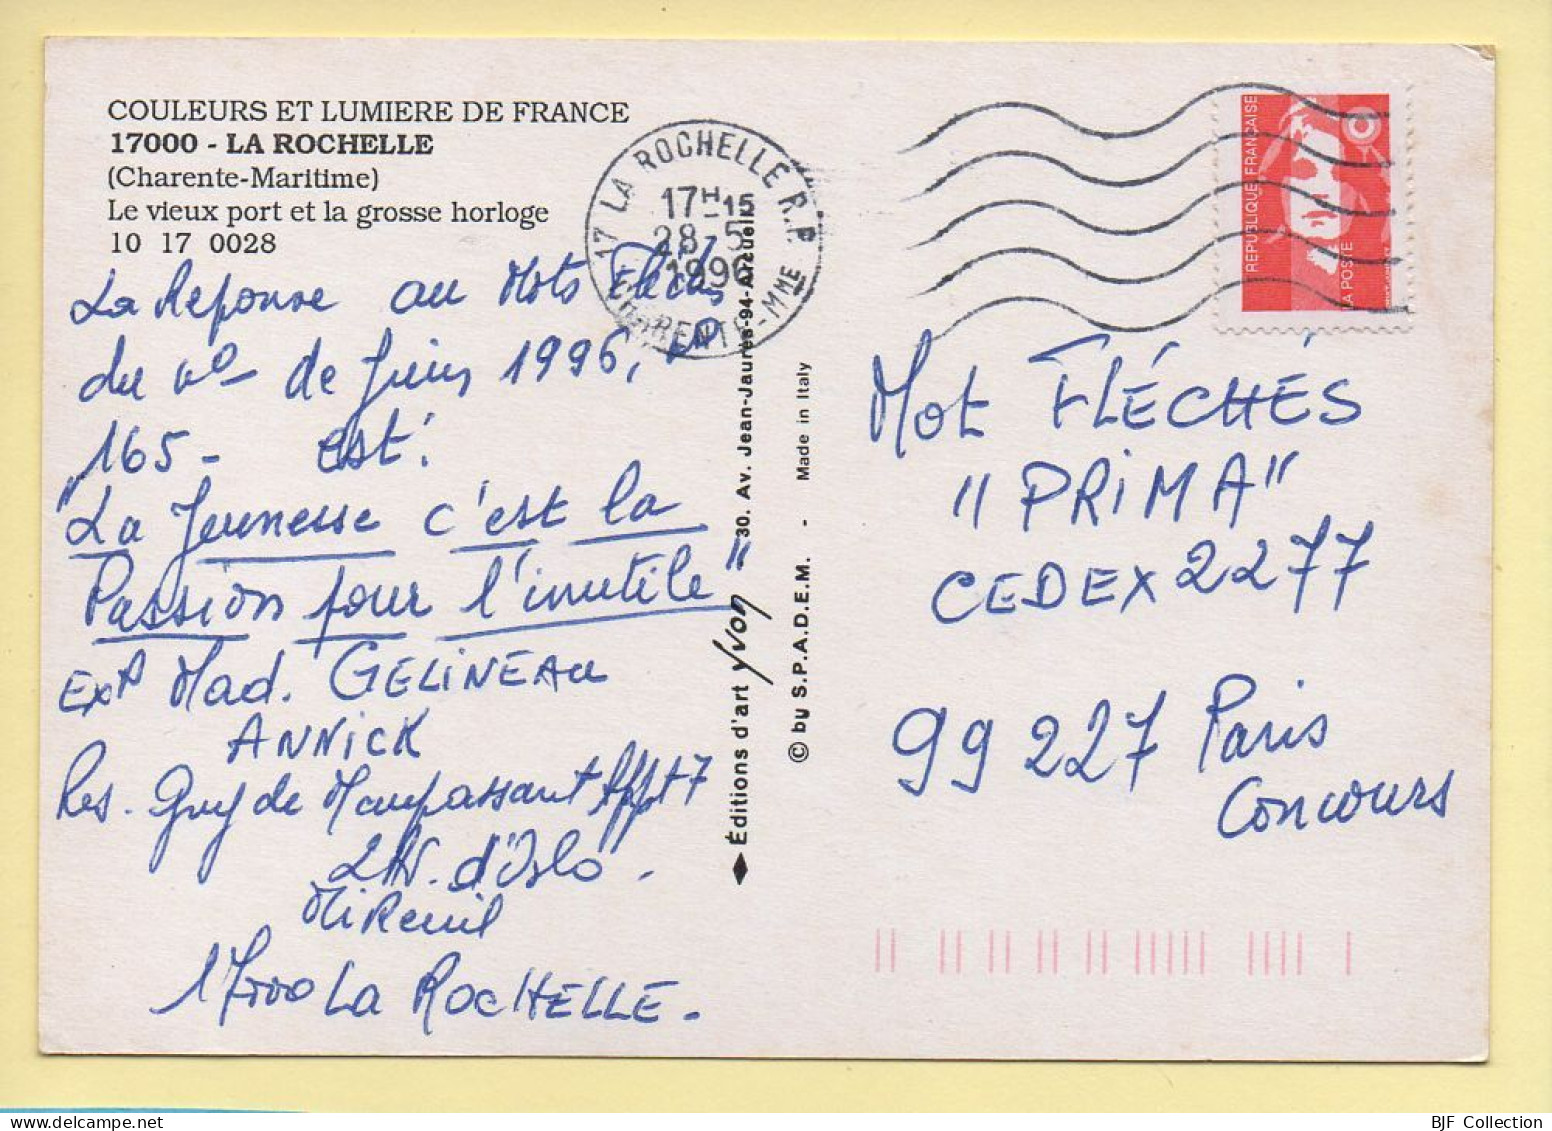 COULEURS ET LUMIERE DE FRANCE
17000 - LA ROCHELLE
(Charente-Maritime)
Le vieux port et la grosse horloge
10 17 0028
La Réponse au Mots Fléchés
du n° - de Juin 1996, P
165 - est :
"La Jeunesse c'est la
Passion pour l'inutile"
Exp Mad. GELINEAU
ANNICK
Res. Guy de Maupassant Appt 7
2 AV. d'Oslo.
Mireuil
17000 LA ROCHELLE.
17 LA ROCHELLE R.P.
17H-15
28-5
1996
CHARENTE-MME
Éditions d'art Yvon 30. Av. Jean-Jaurès-94-Arcueil
© by S.P.A.D.E.M. - Made in Italy
RÉPUBLIQUE FRANÇAISE
LA POSTE
Mot FLÉCHÉS
"PRIMA"
CEDEX 2277
99 227 Paris
Concours
BJF Collection